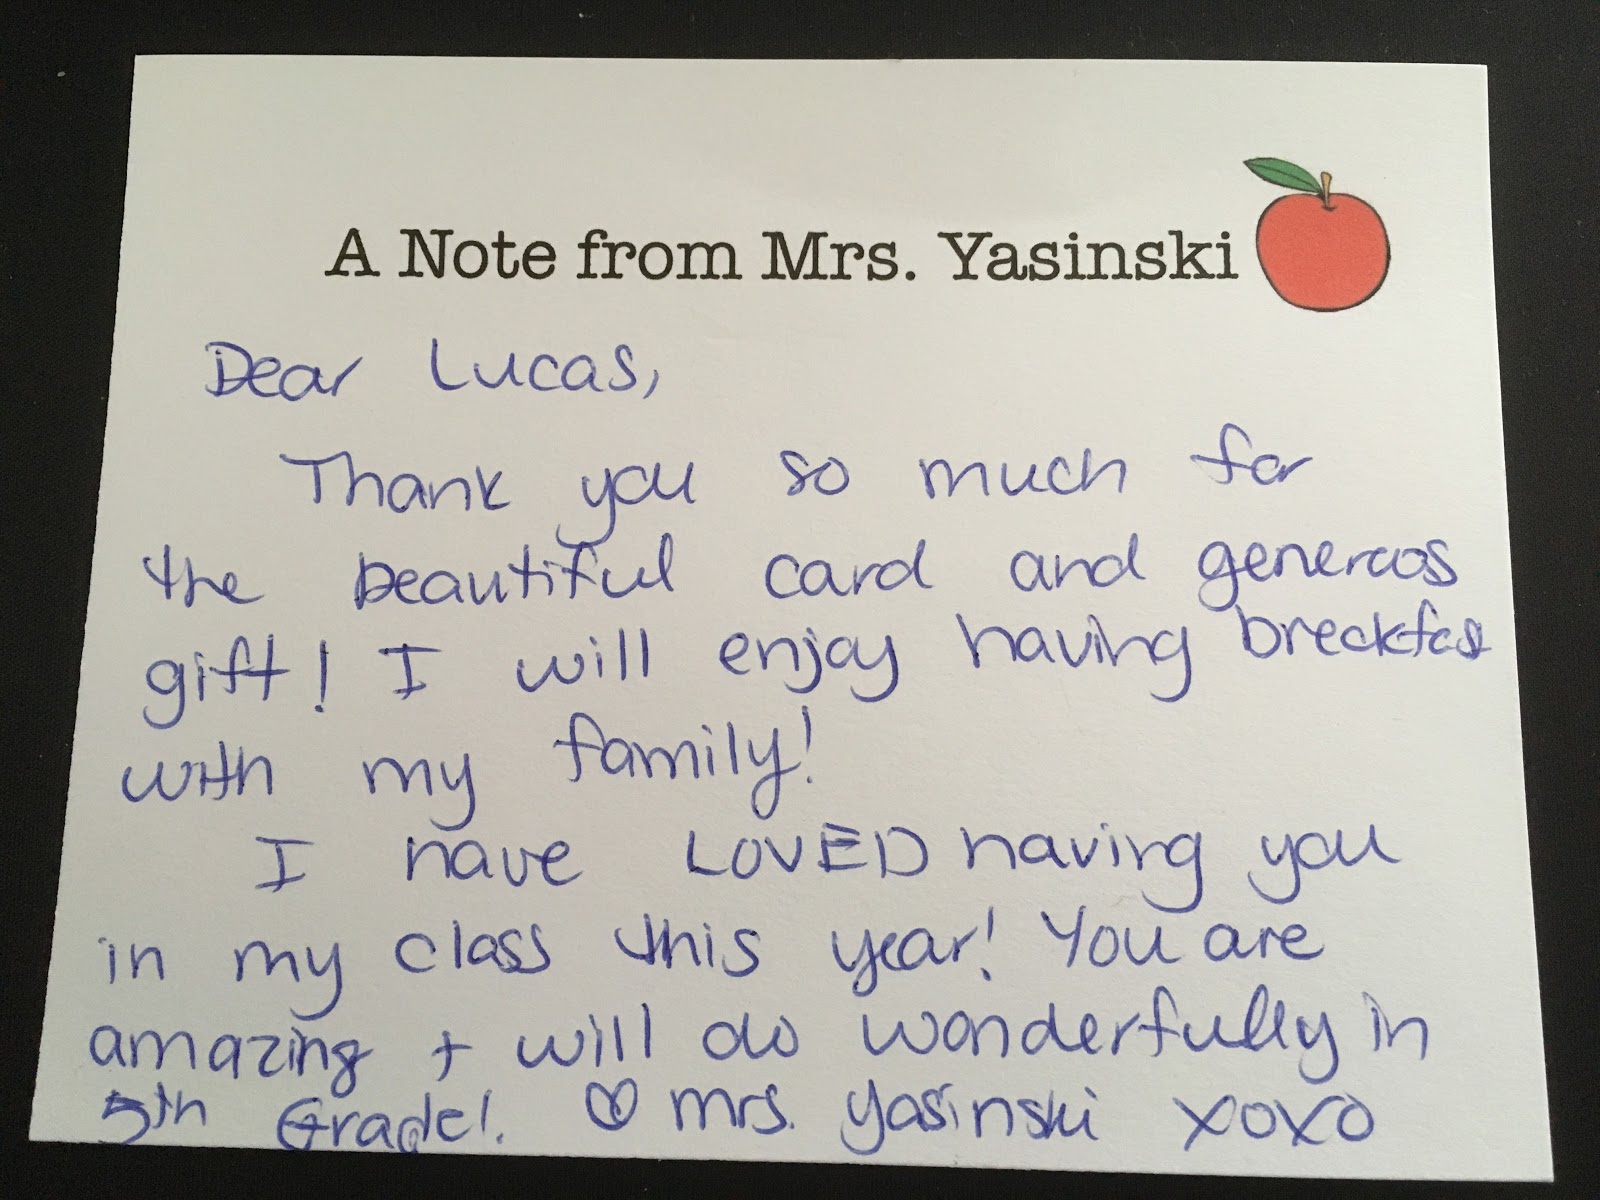 A Note from Mrs. Yasinski
Dear Lucas,
Thank you so much for
the beautiful card and generous
gift! I will enjoy having breakfast
with my family!
I have LOVED having you
in my class this year! You are
amazing + will do wonderfully in
5th Grade! ♡ mrs. Yasinski xoxo